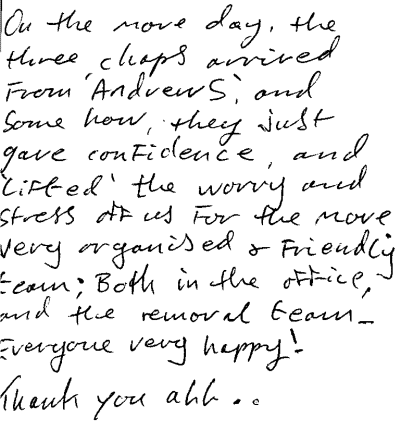 On the move day, the
three chaps arrived
From 'Andrews', and
Some how, they just
gave confidence, and
'Lifted' the worry and
stress off us For the move
Very organised & Friendly
team; Both in the office,
and the removal team -
Everyone very happy!
Thank you all..